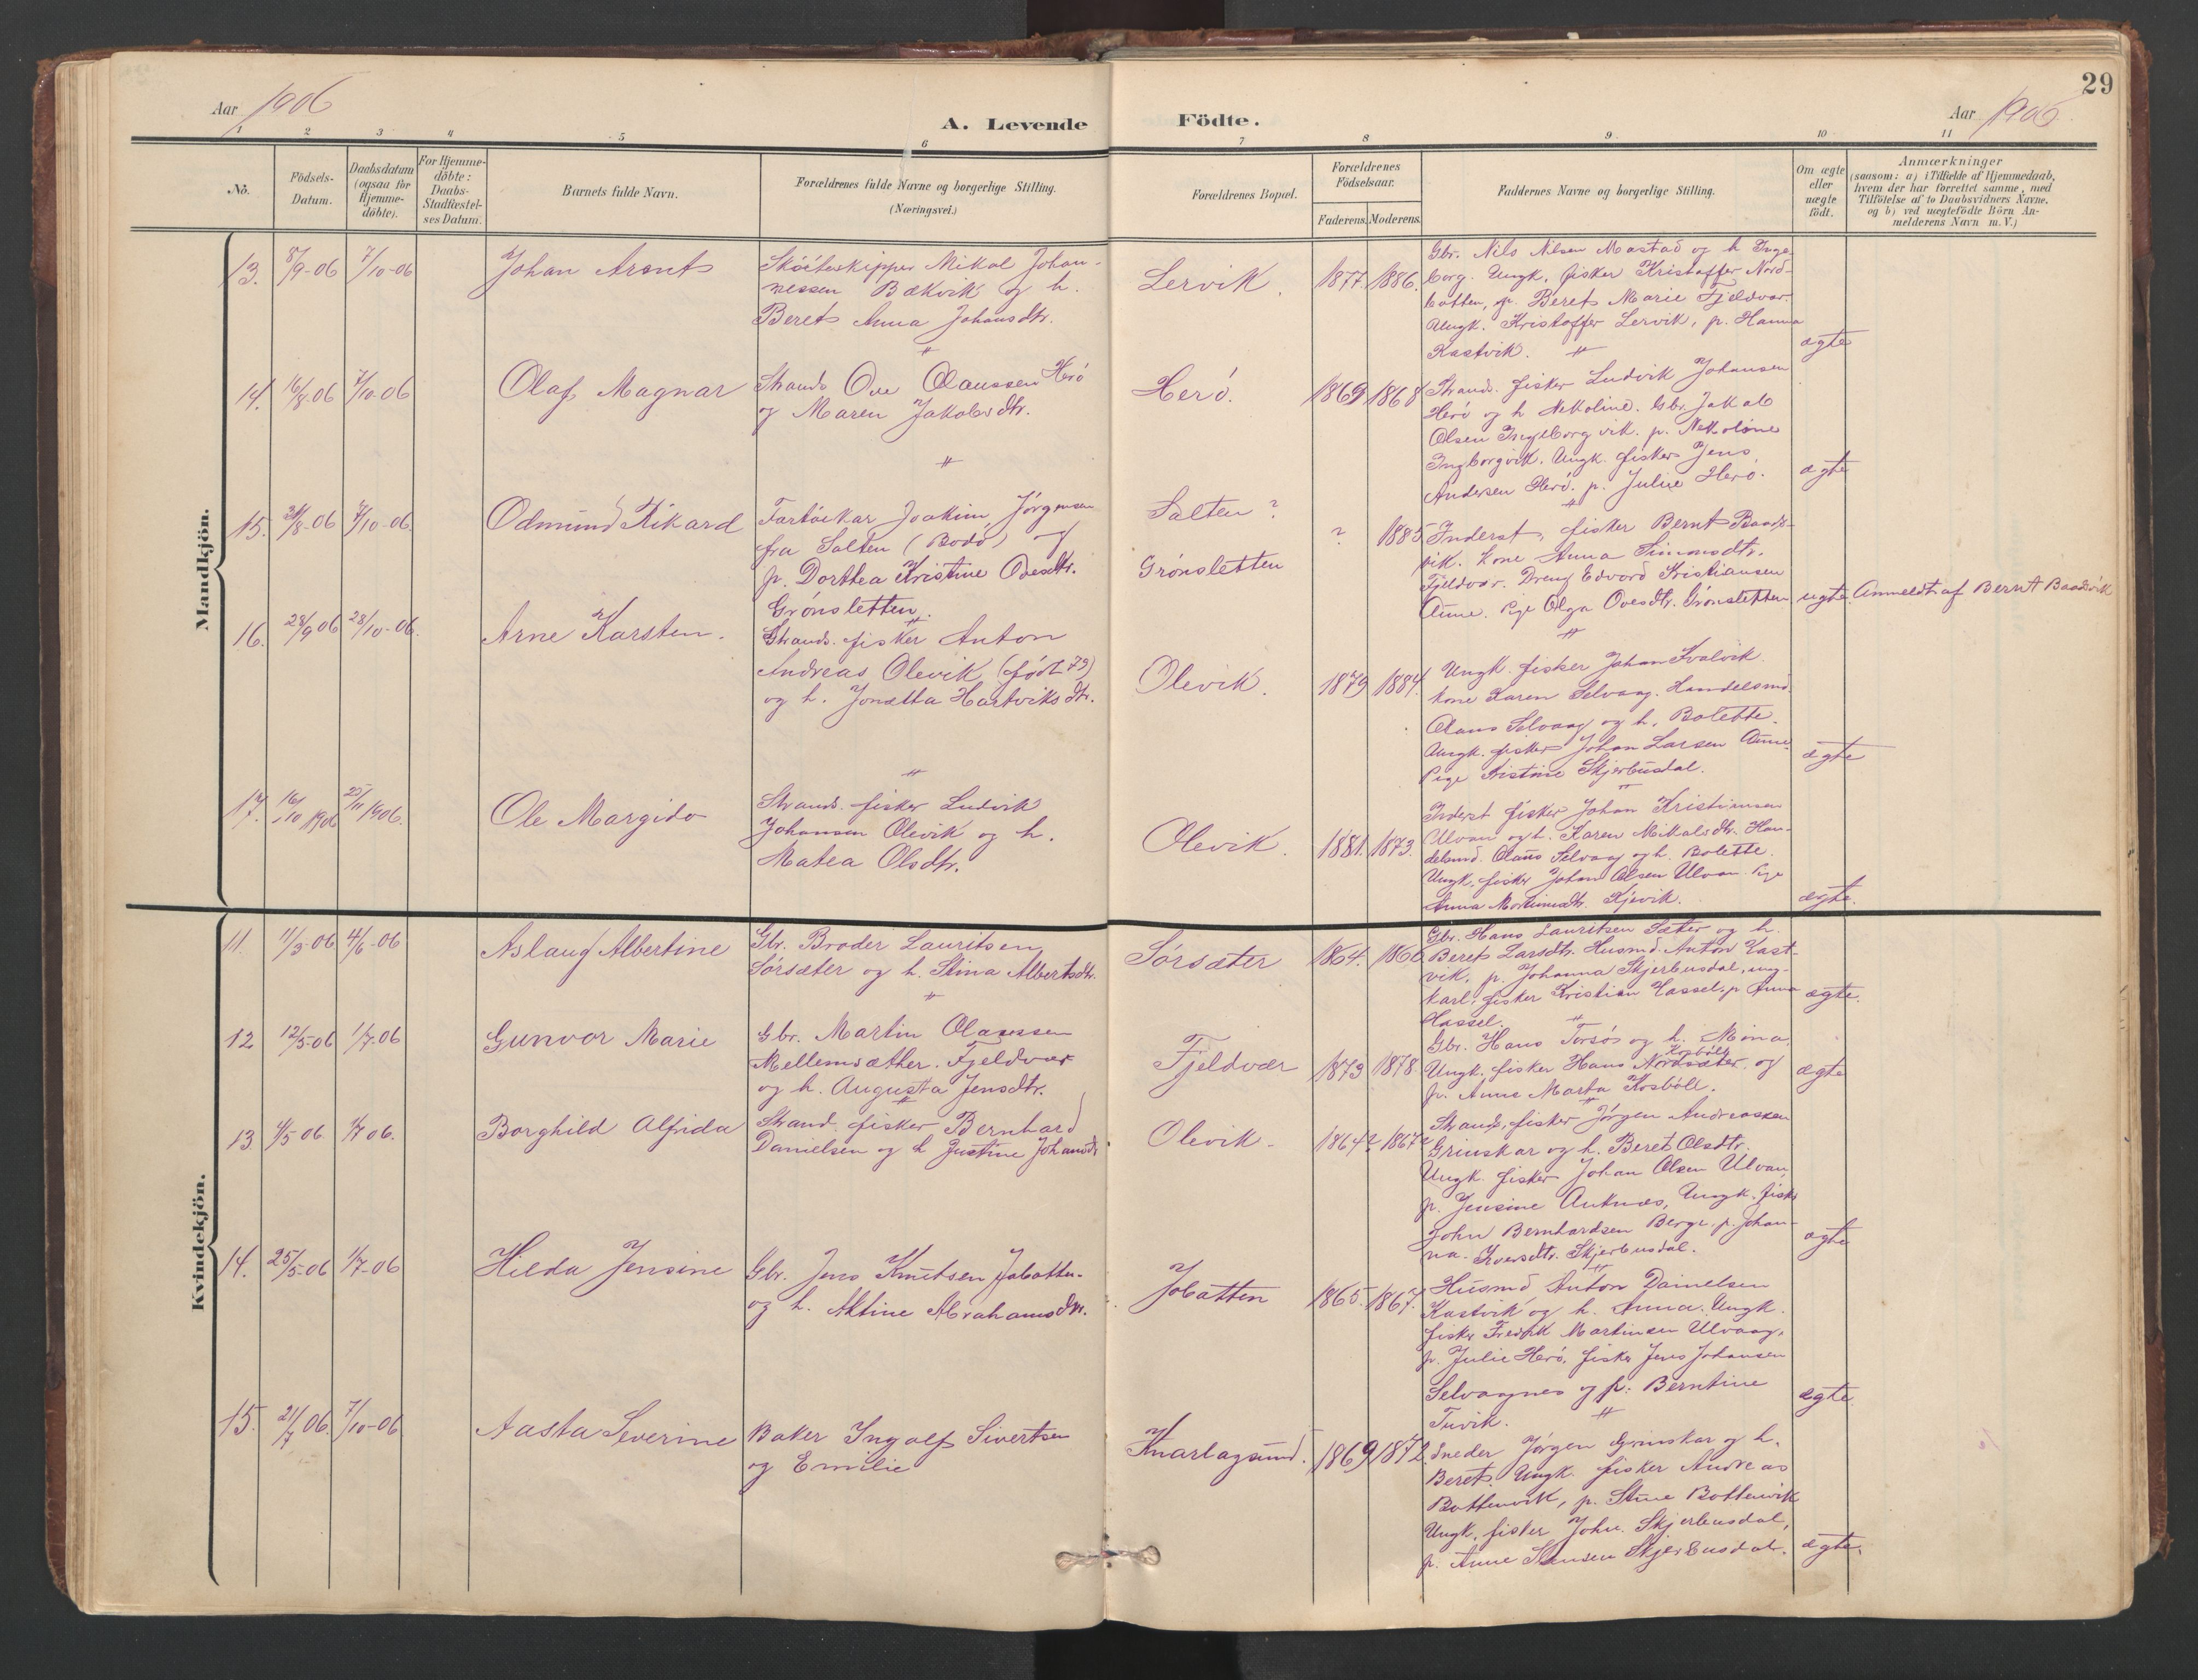 29
Aar 1906
A. Levende Födte.
Aar 1906
1 2 3 4 5 6 7 8 9 10 11
No.
Födsels-
Datum.
Daabsdatum
(ogsaa for
Hjemme-
döbte).
For Hjemme-
döbte:
Daabs-
Stadfæstel-
ses Datum.
Barnets fulde Navn.
Forældrenes fulde Navne og borgerlige Stilling.
(Næringsvei.)
Forældrenes Bopæl.
Forældrenes
Födselsaar.
Faderens. Moderens.
Faddernes Navne og borgerlige Stilling.
Om ægte
eller
uægte
födt.
Anmærkninger
(saasom: a) i Tilfælde af Hjemmedaab,
hvem der har forrettet samme, med
Tilföielse af to Daabsvidners Navne,
og b) ved uægtefödte Börn An-
melderens Navn m. V.)
Mandkjön.
13. 8/9-06 7/10-06
Johan Arent
Mikal Johan-
nessen Bækvik og h.
Beret Anna Johansdtr.
Lervik. 1877. 1886.
Gbr. Nils Nilsen Mastad og h Inge-
borg. Ungk. fisker Kristoffer Nord-
botten, p. Beret Marie Fjeldvær.
Ungk. Kristoffer Lervik, p. Hanna
Kastvik. "
ægte
14. 16/8-06 7/10-06
Olaf Magnar
Strands. Ove Olaussen Herö
og Maren Jakobsdtr.
"
Herö. 1869 1868
Strands. fisker Ludvik Johansen
Herö og h Nekoline. Gbr. Jakob
Olsen Ingeborgvik. p. Nekoline
Ingborgvik. Ungk. fisker Jens
Andersen Herö. p. Julie Herö.
"
ægte
15. 8-06 7/10-06
Odmund Rikard
Joakim Jörgensen
fra Salten (Bodö) og
p. Dorthea Kristine Ovesdtr.
Grönsletten.
Salten ?
Grönsletten
? 1885
Inderst, fisker Bernt Baads-
vik. kone Anna Simonsdtr.
Fjeldvær. Dreng Edvard Kristiansen
Aune. Pige Olga Ovesdtr. Grönsletten
"
uægte.
Anmeldt af Bernt Baadsvik
16. 28/9 06 28/10-06.
Arne Karsten.
Strands. fisker Anton
Andreas Olevik (födt 79)
og h. Jonetta Hartviksdtr.
"
Olevik. 1879 1884.
Ungk. fisker Johan Kvalvik
kone Karen Selvaag. Handelsmd.
Olaus Selvaag og h. Bolette.
Ungk. fisker Johan Larsen Aune.
Pige Kristine Skjerbusdal.
"
ægte
17. 16/10 1906 25/11 1906.
Ole Margido
Strands. fisker Ludvik
Johansen Olevik og h.
Matea Olsdtr.
Olevik. 1881. 1873.
Inderst fisker Johan Kristiansen
Ulvan og h. Karen Mikalsdtr. Han-
delsmd. Olaus Selvaag og h. Bolette.
Ungk. fisker Johan Olsen Ulvan. Pige
Anna Kjevik.
ægte.
Kvindekjön.
11. 11/3-06 4/6-06
Aslaug Albertine
Gbr. Broder Lauritsen
Sörsæter og h. Stina Albertsdtr.
"
Sörsæter 1864. 1866
Gbr. Hans Lauritsen Sæter og h.
Beret Larsdtr. Husmd. Anton Kast-
vik, p. Johanna Skjerbusdal, ung-
karl, fisker Kristian Hassel, p Anna
Hassel. "
ægte.
12 12/5-06 1/7-06
Gunvor Marie
Gbr. Martin Olaussen
Mellemsæther. Fjeldvær
og h. Augusta Jensdtr.
"
Fjeldvær 1873 1878
Gbr. Hans Torsös og h. Mina.
Ungk. fisker Hans Nordsæter Kosböle og
p. Anne Marta Kosböle.
"
ægte
13. 4/5 06. 1/7 06.
Borghild Alfrida
Strand. fisker Bernhard
Danielsen og h Justine Johansdtr
Olevik. 1864? 1867?
Strands. fisker Jörgen Andreassen
Grinskar og h. Beret Olsdtr.
Ungk. fisker Johan Olsen Ulvan
p. Jensine Auknes, Ungk. fisk
John Bernhardsen Berge. p. Johan-
na. Iversdtr. Skjerbusdal.
"
ægte
14. 25/5-06 1/7-06
Hilda Jensine
Gbr. Jens Knutsen Jöbotten
og h. Aktine Abrahamsdtr.
Jöbotten 1865. 1867.
Husmd Anton Danielsen
Kastvik og h. Anna. Ungk.
fisker Fredrik Martinsen Ulvaag,
p. Julie Herö, fisker Jens Johansen
Selvagnes og p. Berntine
Tuvik. "
ægte
15. 21/7 06. 7/10-06
Aasta Severine
Baker Ingolf Sivertsen
og Emilie
Knarlagsund. 1869 1872.
Sneder Jörgen Grinskar og h.
Beret. Ungk. fisker Andreas
Bottenvik, p. Stine Bottenvik
Ungk. fisker John. Skjerbusdal,
p. Anne Skjerbusdal.
ægte.